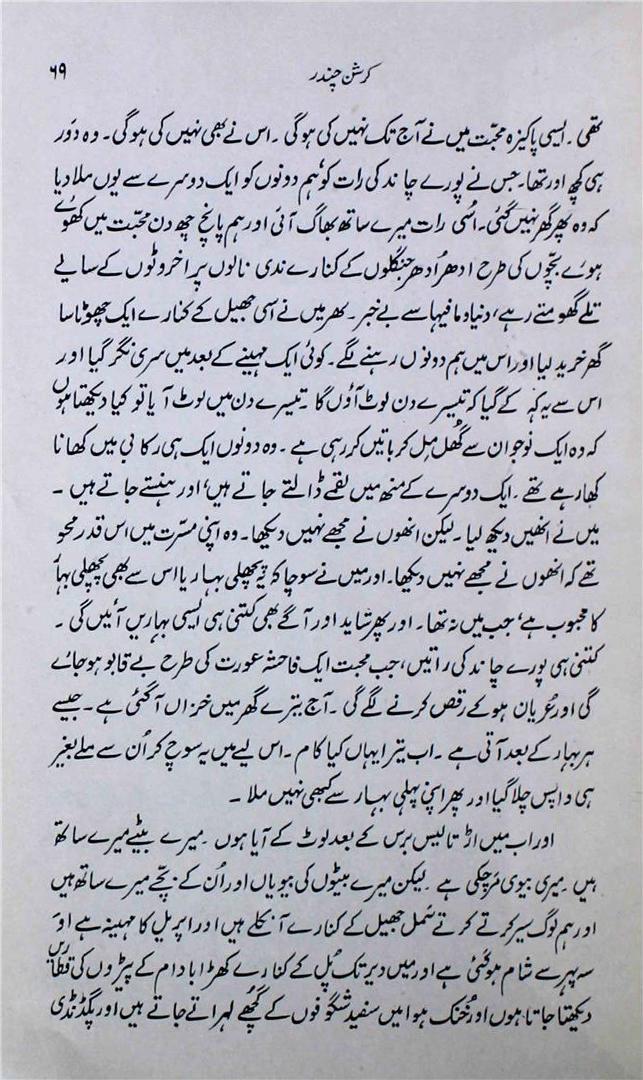 کرشن چندر ۶۹
تھی ۔ ایسی پاکیزہ محبّت میں نے آج تک نہیں کی ہوگی ۔ اس نے بھی نہیں کی ہوگی ۔ وہ دَور
ہی کچھ اور تھا ۔ جس نے پورے چاند کی رات کو ہم دونوں کو ایک دوسرے سے یوں ملا دیا
کہ وہ پھر گھر نہیں گئی ۔ اسُی رات میرے ساتھ بھاگ آئی اور ہم پانچ چھ دن محبّت میں کھوئے
ہوئے بچّوں کی طرح ادھر اُدھر جنگلوں کے کنارے ندی نالوں پر اخروٹوں کے سایے
تلے گھومتے رہے، دنیا و ما فیہا سے بے خبر ۔ پھر میں نے اسی جھیل کے کنارے ایک چھوٹا سا
گھر خرید لیا اور اس میں ہم دونوں رہنے لگے ۔ کوئی ایک مہینے کے بعد میں سری نگر گیا اور
اس سے یہ کہہ کے گیا کہ تیسرے دن لوٹ آؤں گا ۔ تیسرے دن میں لوٹ آیا تو کیا دیکھتا ہوں
کہ وہ ایک نوجوان سے گھُل مِل کر باتیں کر رہی ہے ۔ وہ دونوں ایک ہی رکابی میں کھانا
کھا رہے تھے ۔ ایک دوسرے کے منھ میں لقمے ڈالتے جاتے ہیں، اور ہنستے جاتے ہیں ۔
میں نے انھیں دیکھ لیا ۔ لیکن انھوں نے مجھے نہیں دیکھا ۔ وہ اپنی مسرّت میں اس قدر محو
تھے کہ انھوں نے مجھے نہیں دیکھا ۔ اور میں نے سوچا کہ یہ پچھلی بہار یا اس سے بھی پچھلی بہار
کا محبوب ہے، جب میں نہ تھا ۔ اور پھر شاید اور آگے بھی کتنی ہی ایسی بہاریں آئیں گی ۔
کتنی ہی پورے چاند کی راتیں، جب محبت ایک فاحشہ عورت کی طرح بے قابو ہو جائے
گی اور عُریاں ہو کے رقص کرنے لگے گی ۔ آج تیرے گھر میں خزاں آ گئی ہے ۔ جیسے
ہر بہار کے بعد آتی ہے ۔ اب تیرا یہاں کیا کام ۔ اس لیے میں یہ سوچ کر اُن سے ملے بغیر
ہی واپس چلا گیا اور پھر اپنی پہلی بہار سے کبھی نہیں ملا ۔
اور اب میں اڑتالیس برس کے بعد لوٹ کے آیا ہوں ۔ میرے بیٹے میرے ساتھ
ہیں ۔ میری بیوی مر چکی ہے ۔ لیکن میرے بیٹوں کی بیویاں اور اُن کے بچّے میرے ساتھ ہیں
اور ہم لوگ سیر کرتے کرتے سمل جھیل کے کنارے آ نکلے ہیں اور اپریل کا مہینہ ہے اور
سہ پہر سے شام ہو گئی ہے اور میں دیر تک پُل کے کنارے کھڑا بادام کے پیڑوں کی قطاریں
دیکھتا جاتا ہوں اور خُنک ہوا میں سفید شگوفوں کے گچھے لہراتے جاتے ہیں اور پگڈنڈی